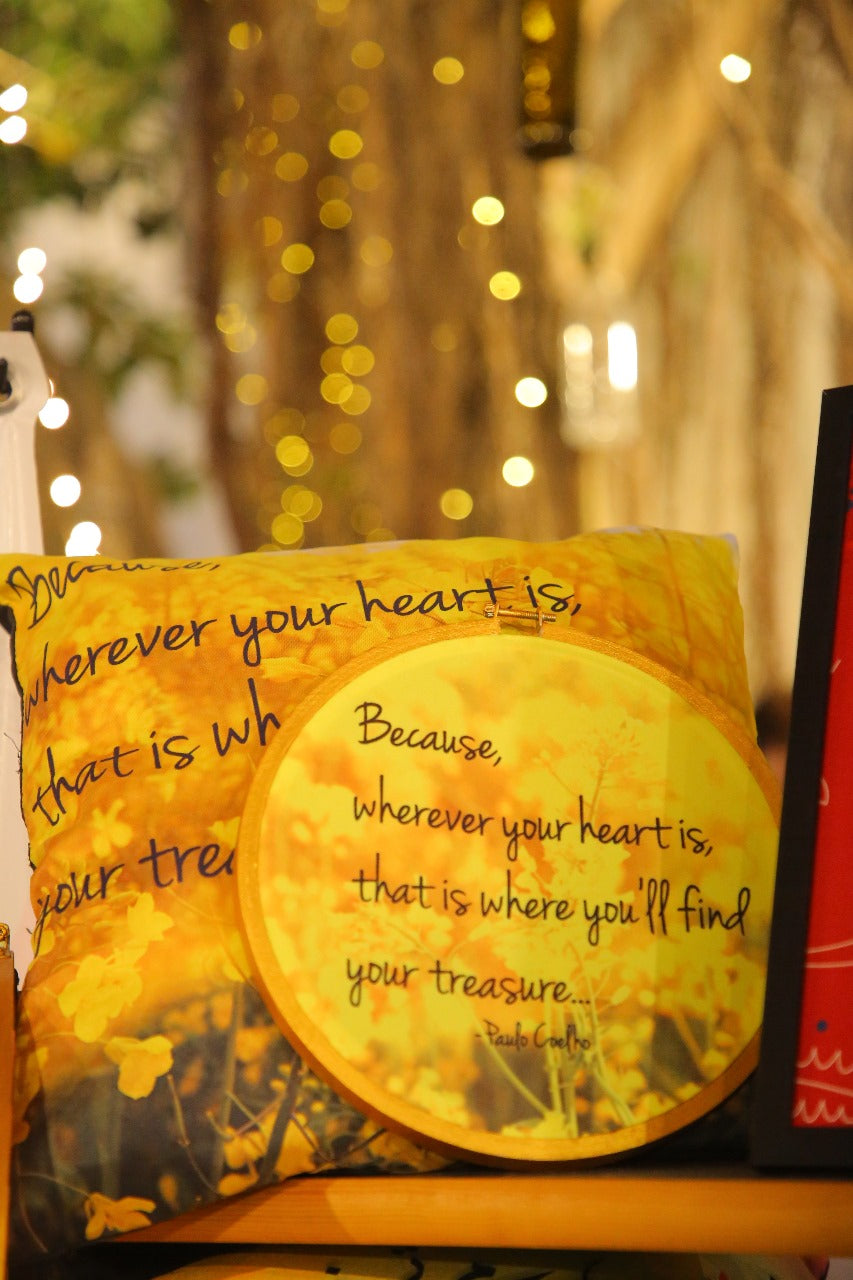 Because,
wherever your heart is,
that is wh
your trea
Because,
wherever your heart is,
that is where you'll find
your treasure...
-Paulo Coelho